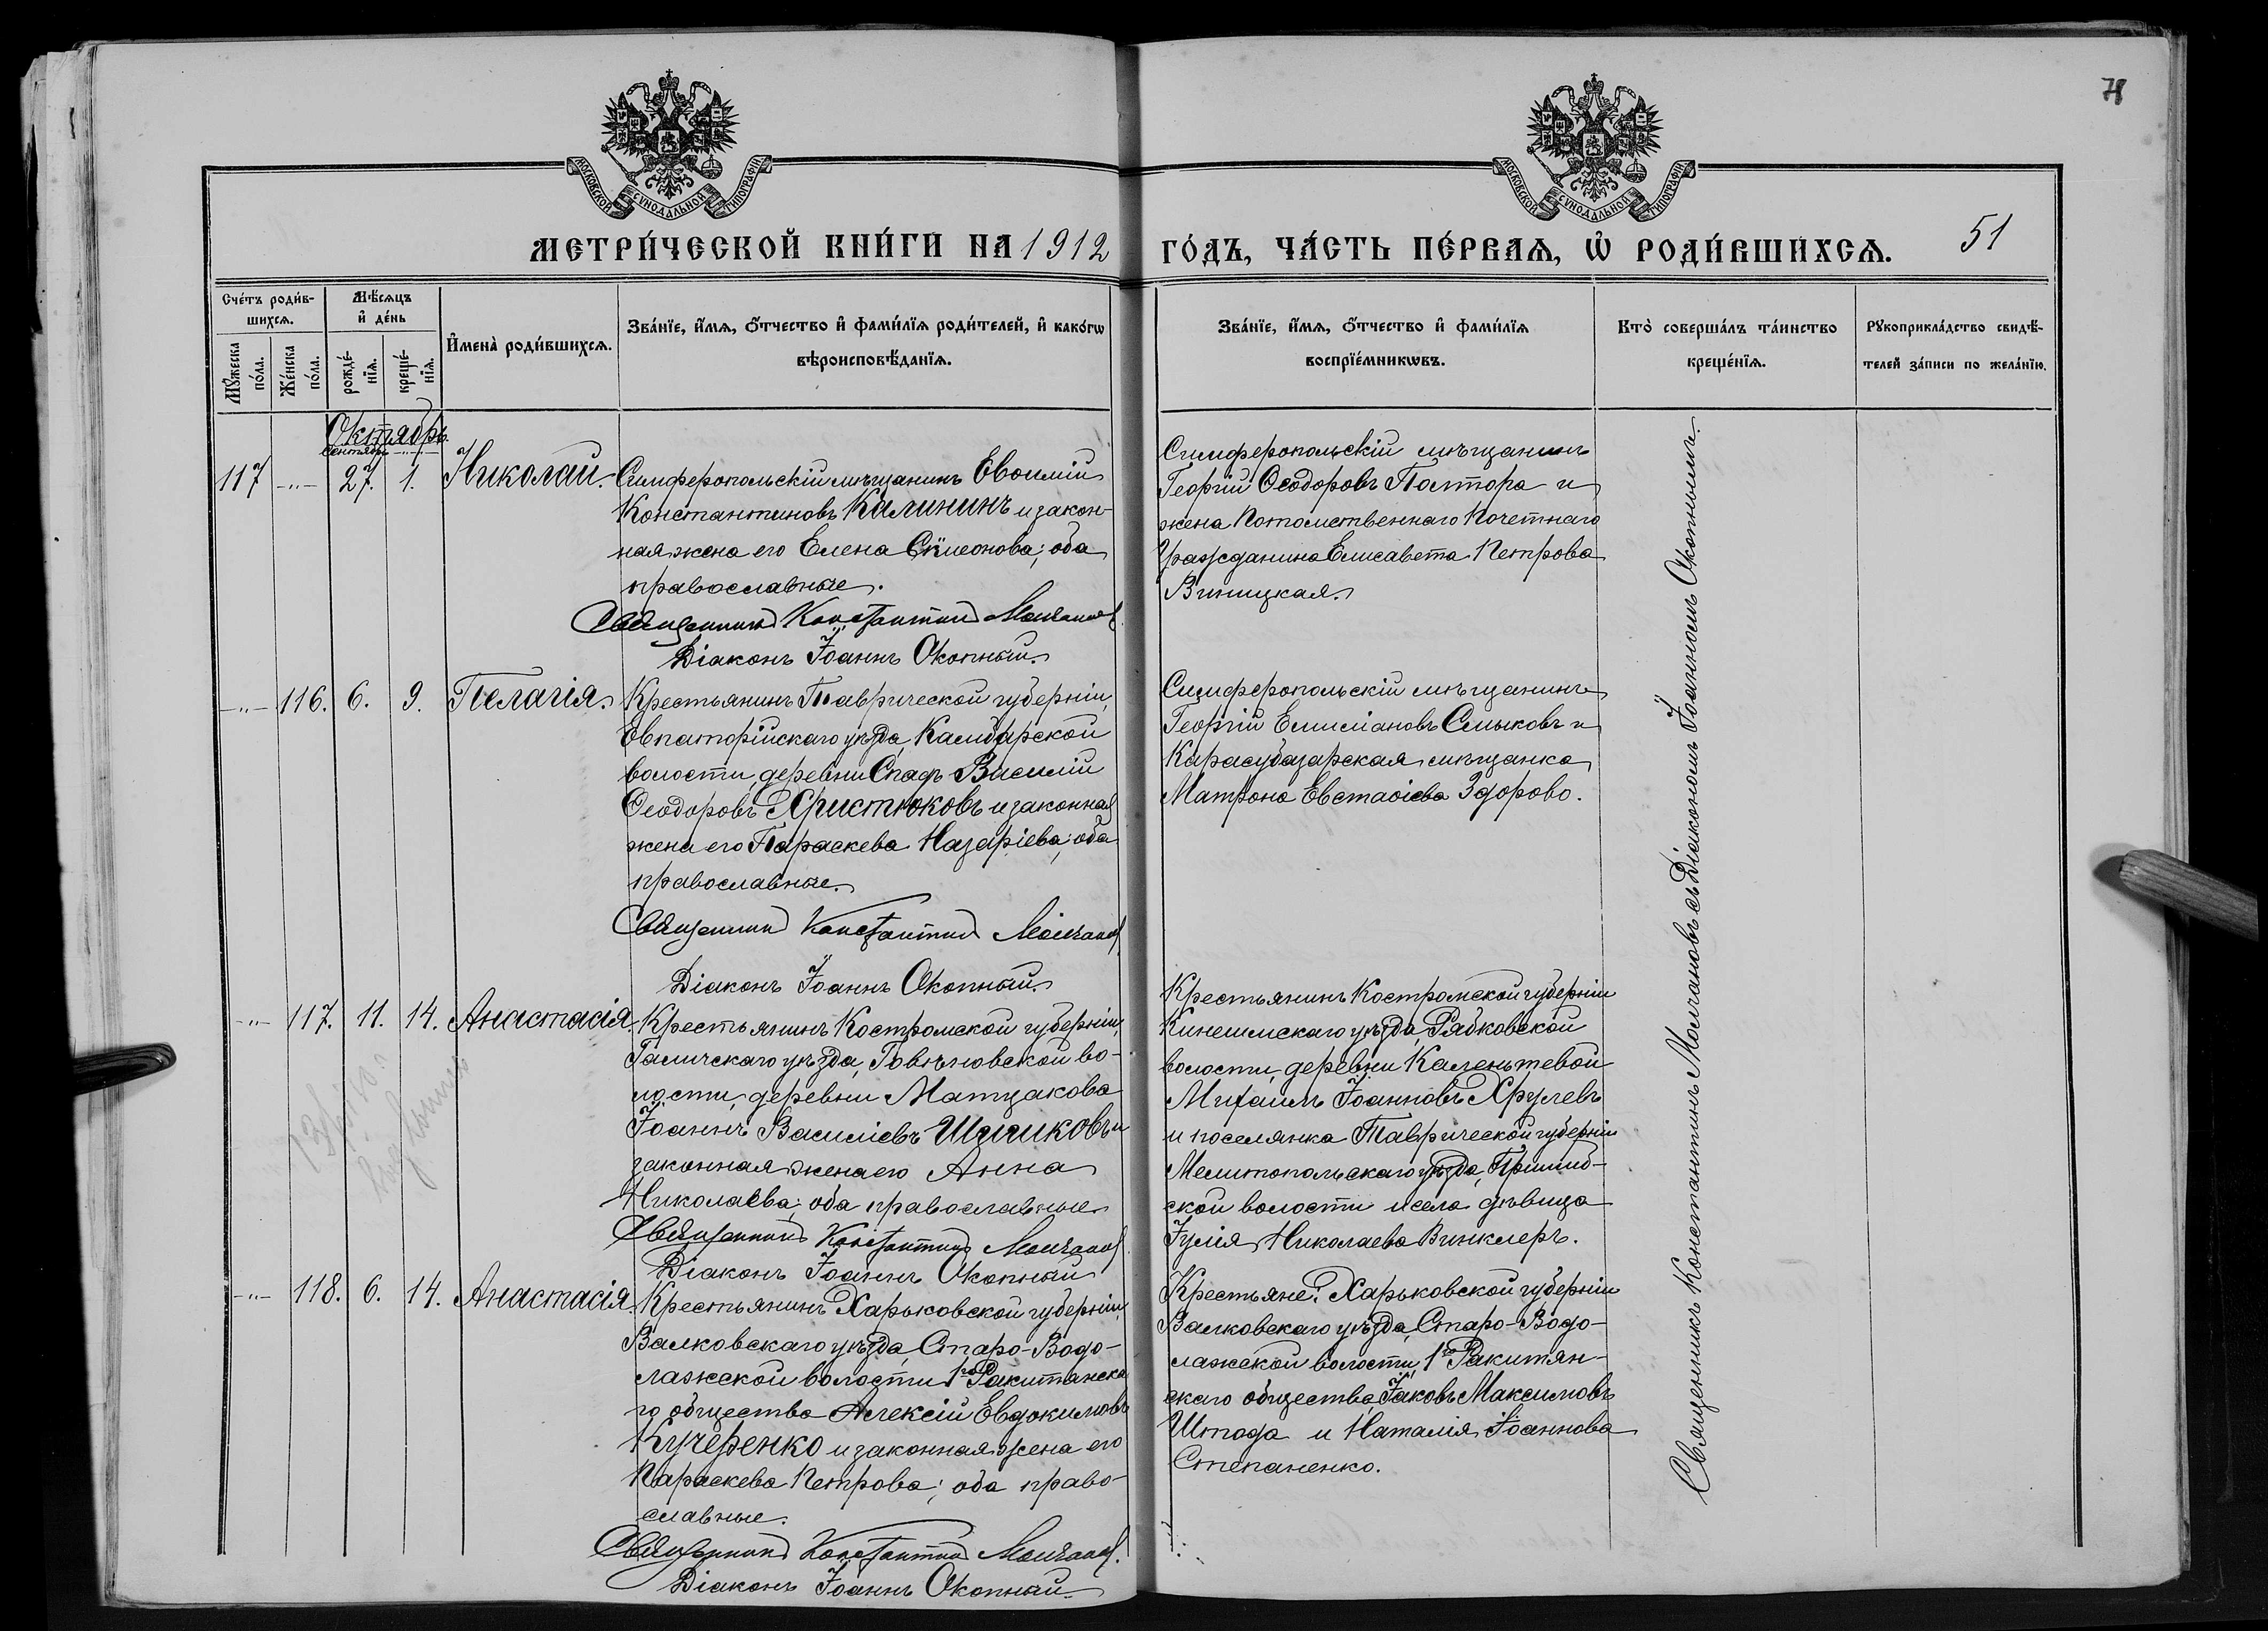 78
МОСКОВСКОЙ СѴНОДАЛЬНОЙ ТИПОГРАФІИ
МОСКОВСКОЙ СѴНОДАЛЬНОЙ ТИПОГРАФІИ
МЕТРИ́ЧЕСКОЙ КНИ́ГИ НА 1912
ГО́ДЪ, ЧА́СТЬ ПЕ́РВАѦ, Ѿ РОДИ́ВШИХСѦ.
51
Сче́тъ роди́в-
шихсѧ.
Мѣ́сѧцъ
и҆ де́нь
Мꙋ́жеска
по́ла.
Же́нска
по́ла.
рожде́-
нїѧ.
креще́-
нїѧ.
И҆мена̀ роди́вшихсѧ.
Зва́нїе, и҆́мѧ, ѻ҆́тчество и҆ фами́лїѧ роди́телей, и҆ како́гѡ
вѣроисповѣ́данїѧ.
Зва́нїе, и҆́мѧ, ѻ҆́тчество и҆ фами́лїѧ
воспрїе́мникѡвъ.
Кто̀ соверша́лъ та́инство
креще́нїѧ.
Рꙋкоприкла́дство свидѣ́-
телей за́писи по жела́нїю.
Октябрь.
Сентябрь
117 -"- 27. 1. Николай.
Симферопольскій мѣщанинъ Евѳимій
Константиновъ Калининъ и закон-
ная жена его Елена Сѵмеонова; оба
православные.
Священникъ Константинъ Молчановъ
Діаконъ Іоаннъ Окопный.
Симферопольскій мѣщанинъ
Георгій Ѳеодоровъ Полтора и
жена Потомственнаго Почетнаго
Гражданина Елисавета Петрова
Виницкая.
-"- 116. 6. 9. Пелагія.
Крестьянинъ Таврической губерніи,
Евпаторійскаго уѣзда, Камбарской
волости, деревни Спатъ Василій
Ѳеодоровъ Христюковъ и законная
жена его Параскева Назаріева; оба
православные.
Священникъ Константинъ Молчановъ
Діаконъ Іоаннъ Окопный.
Симферопольскій мѣщанинъ
Георгій Емиліановъ Смыковъ и
Карасубазарская мѣщанка
Матрона Евстаѳіева Здорово.
-"- 117. 11. 14. Анастасія.
Крестьянинъ Костромской губерніи,
Галичскаго уѣзда, Говѣновской во-
лости, деревни Матцакова
Іоаннъ Василіевъ Шишковъ и
законная жена его Анна
Николаева; оба православные
Священникъ Константинъ Молчановъ
Діаконъ Іоаннъ Окопный
Крестьянинъ Костромской губерніи
Кинешмскаго уѣзда, Рябковской
волости, деревни Каленьтевой
Михаилъ Іоанновъ Хрулевъ
и поселянка Таврической губерніи
Мелитопольскаго уѣзда, Пришиб-
ской волости и села дѣвица
Іулія Николаева Винклеръ.
-"- 118. 6. 14. Анастасія.
Крестьянинъ Харьковской губерніи,
Валковскаго уѣзда, Старо-Водо-
лажской волости 1го Ракитянска
го общества Алексій Евдокимовъ
Кучеренко и законная жена его
Параскева Петрова; оба право-
славные.
Священникъ Константинъ Молчановъ.
Діаконъ Іоаннъ Окопный.
Крестьяне: Харьковской губерніи
Валковскаго уѣзда, Старо-Водо-
лажской волости, 1го Ракитян-
скаго общества, Іаковъ Максимовъ
Штода и Наталія Іоаннова
Степаненко.
Священникъ Константинъ Молчановъ съ Діакономъ Іоанномъ Окопнымъ.